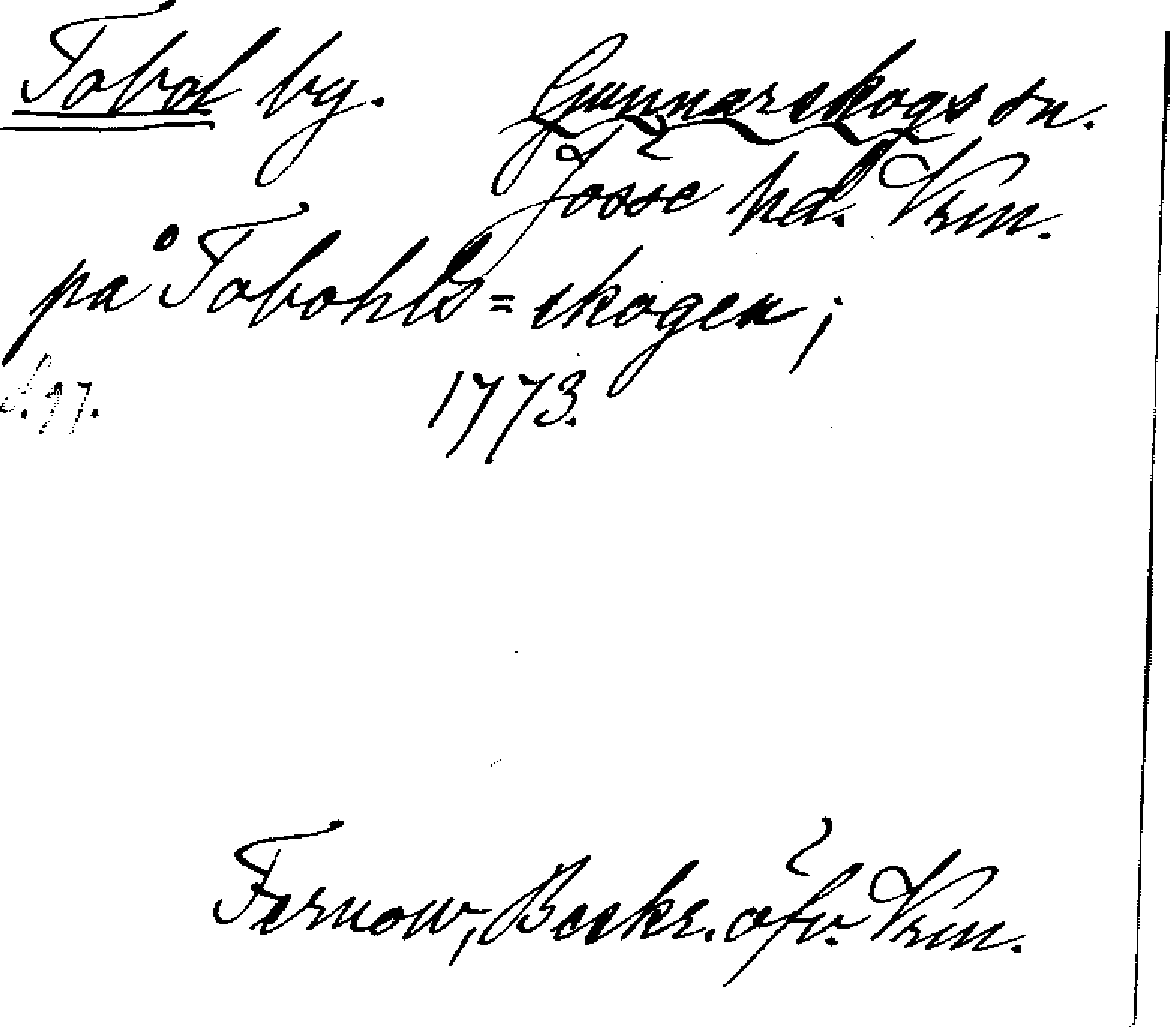 Tobol by. Gunnarskogs sn.
Jösse hd. Vrm.
på Tobohls=skogen;
s. 97. 1773.
Fernow, Beskr. öfv. Vrm.